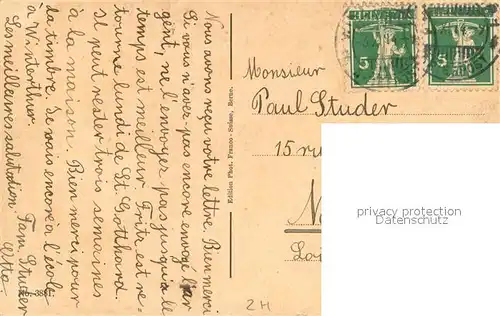 Nous avons reçu votre lettre. Bien merci
Si vous n'avez pas encore envoyé l'ar
gent, ne l'envoyez pas jusqu'à le
temps est meilleur. Fritz est re-
tourné lundi de St. Gotthard.
Il peut rester trois semaines
à la maison. Bien merci pour
la timbre. Je vais encore à l'école
à Winterthur.
Les meilleures salutation Fam. Studer
Otto.
Edition Phot. Franco-Suisse, Berne.
HELVETIA
5
HELVETIA
5
Monsieur
Paul Studer
15 ru
privacy protection
AnsichtskartenCenter
2H